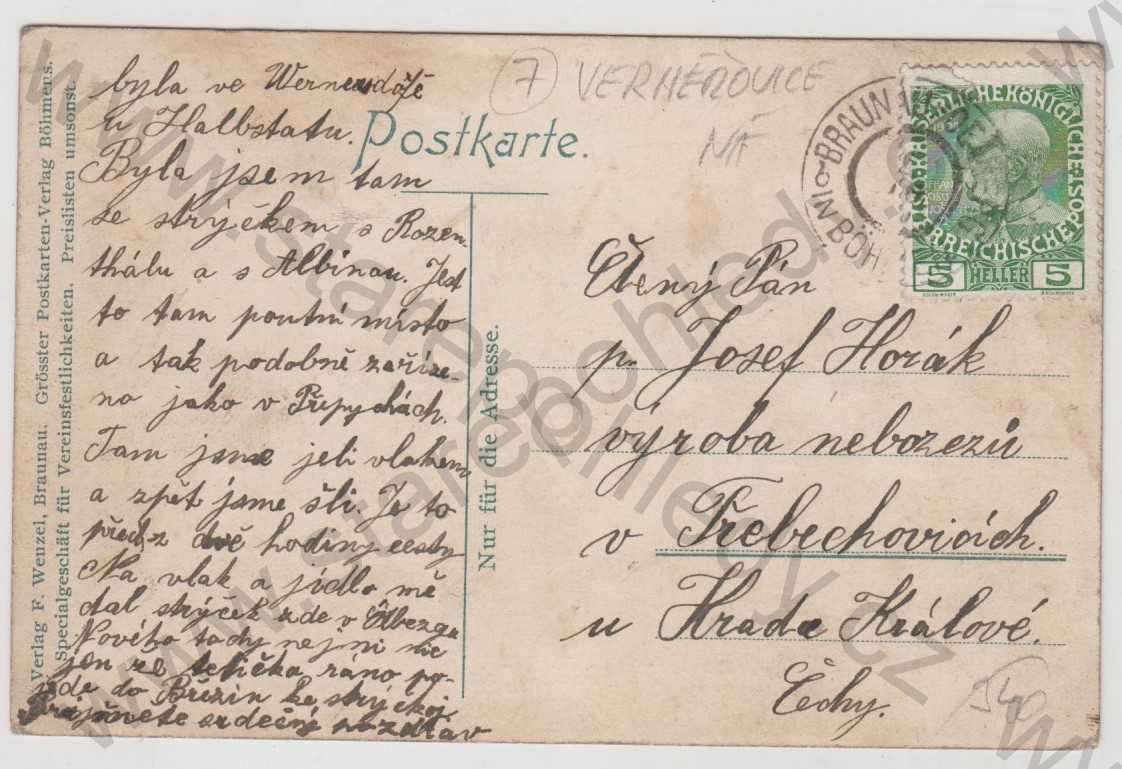 byla ve Wernersdorfě
u Halbstatu.
Byla jsem tam
se strýčkem s Rozen
thálu a s Albinou. Jest
to tam poutní místo
a tak podobně zaříze-
no jako v Přepychách.
Tam jsme jeli vlakem
a zpět jsme šli. Je to
přes dvě hodiny cesty
Na vlak a jídlo mě
dal strýček zde v
Nového tady nejni nic
jen ze tetička ráno po-
jede do Březin ke strýčkoj
Přijmete srdečný pozdrav
7 VERNÉŘOVICE
NÁ
Postkarte.
BRAUNAU
IN BÖH
KAISERLICHE KÖNIGLICHE
ÖSTERREICHISCHE POST
5 HELLER 5
Ctený Pán
p. Josef Horák
výroba nebozezů
v Třebechovicích.
u Hradce Králové.
Čechy.
Nur für die Adresse.
Verlag F. Wenzel, Braunau. Grösster Postkarten-Verlag Böhmens.
Specialgeschäft für Vereinsfestlichkeiten. Preislisten umsonst.
www.starepohledy.cz